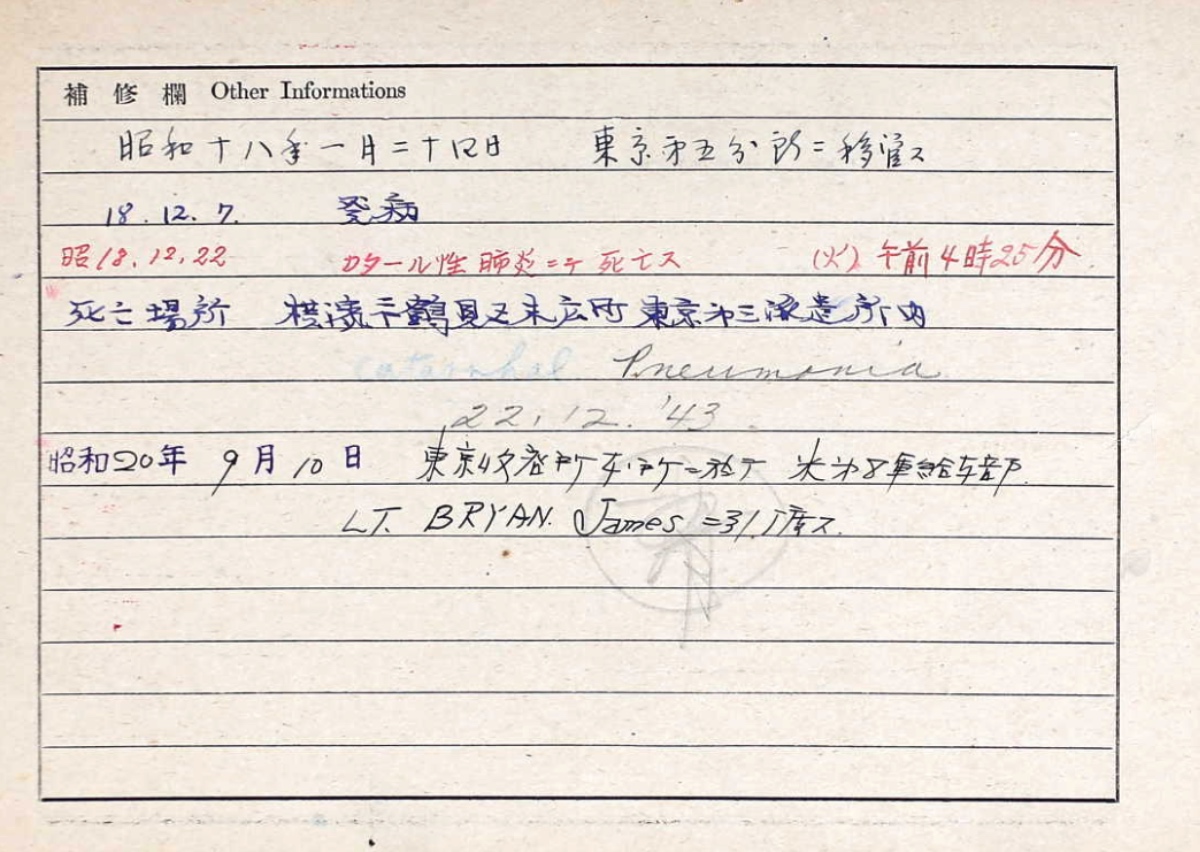 補修欄 Other Informations
昭和十八年一月二十四日 東京第五分所ニ移管ス
18.12.7. 発病
昭18.12.22 カタール性肺炎ニテ死亡ス (火)午前4時25分.
死亡場所 横濱市鶴見区末広町東京第三派遣所内
catarrhal Pneumonia
22.12.'43.
昭和20年9月10日 東京収容所本所ニ於テ 米第8軍給与部
LT. BRYAN. James ニ引渡ス.